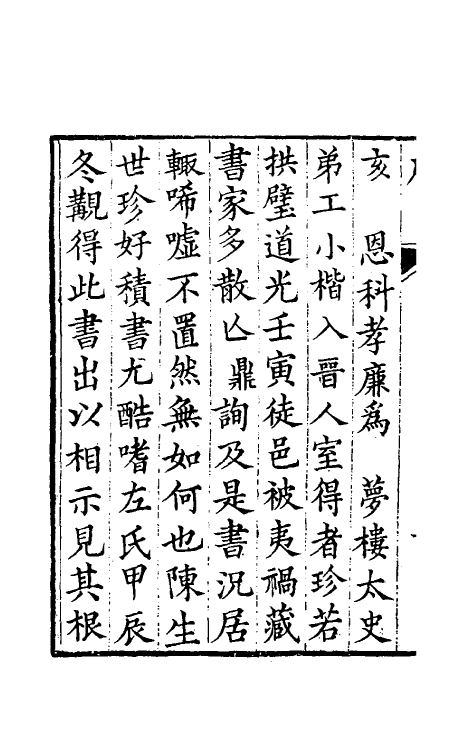 亥　恩科孝廉爲　夢樓太史
弟工小楷入晋人室得者珍若
拱璧道光壬寅徒邑被夷禍藏
書家多散亾鼎詢及是書況居
輙唏嘘不置然無如何也陳生
世珍好積書尤酷嗜左氏甲辰
冬覯得此書出以相示見其根